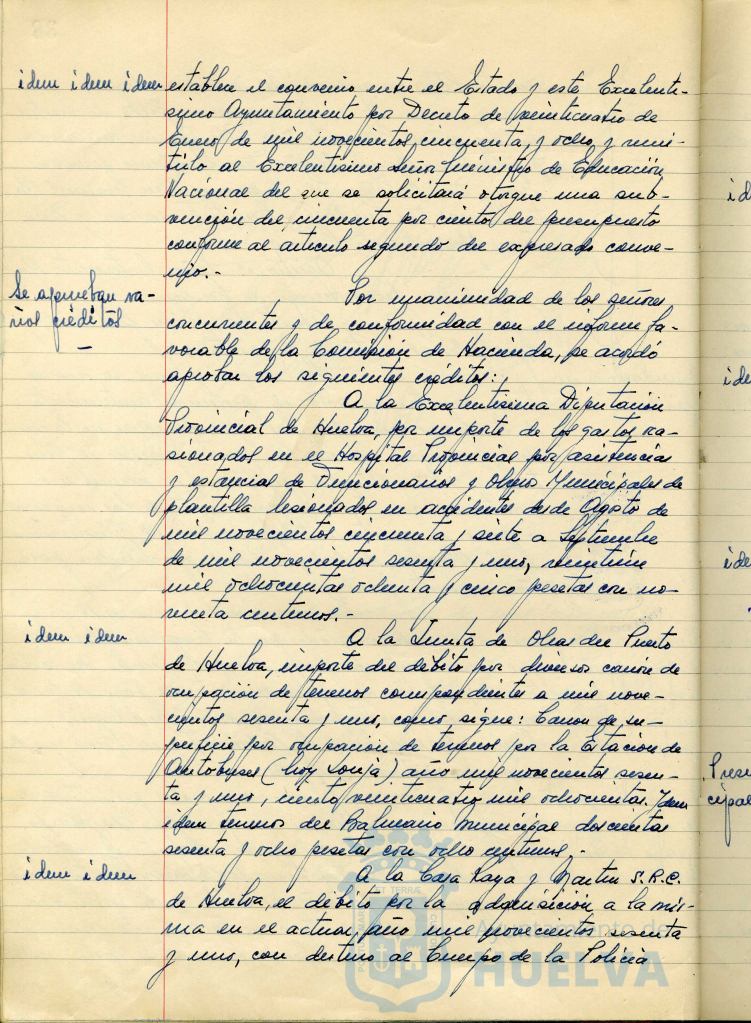 idem idem idem
establece el convenio entre el Estado y este Excelentí-
simo Ayuntamiento por Decreto de veinticuatro de
Enero de mil novecientos cincuenta y ocho, y remi-
tirlo al Excelentísimo Señor Ministro de Educación
Nacional del que se solicitará otorgue una sub-
vención del cincuenta por ciento del presupuesto
conforme al artículo segundo del expresado conve-
nio.-
Se aprueban va-
rios créditos
Por unanimidad de los señores
concurrentes y de conformidad con el informe fa-
vorable de la Comisión de Hacienda, se acordó
aprobar los siguientes créditos:
A la Excelentísima Diputación
Provincial de Huelva, por importe de los gastos oca-
sionados en el Hospital Provincial por asistencias
y estancias de Funcionarios y Obreros Municipales de
plantilla lesionados en accidentes desde Agosto de
mil novecientos cincuenta y siete a Septiembre
de mil novecientos sesenta y uno, veintiún
mil ochocientas ochenta y cinco pesetas con no-
venta céntimos.-
idem idem
A la Junta de Obras del Puerto
de Huelva, importe del débito por diversos canon de
ocupación de terrenos correspondientes a mil nove-
cientos sesenta y uno, como sigue: Canon de su-
perficie por ocupación de terrenos por la Estación de
Autobuses (hoy Lonja) año mil novecientos sesen-
ta y uno, ciento veinticuatro mil ochocientas. Idem
idem terrenos del Balneario Municipal doscientas
sesenta y ocho pesetas con ocho céntimos.-
idem idem
A la Casa Raya y Martín S.R.C.
de Huelva, el débito por la adquisición a la mis-
ma en el actual año mil novecientos sesenta
y uno, con destino al Cuerpo de la Policía
id
ide
ide
Presu
cipal
Ayuntamiento de
HUELVA